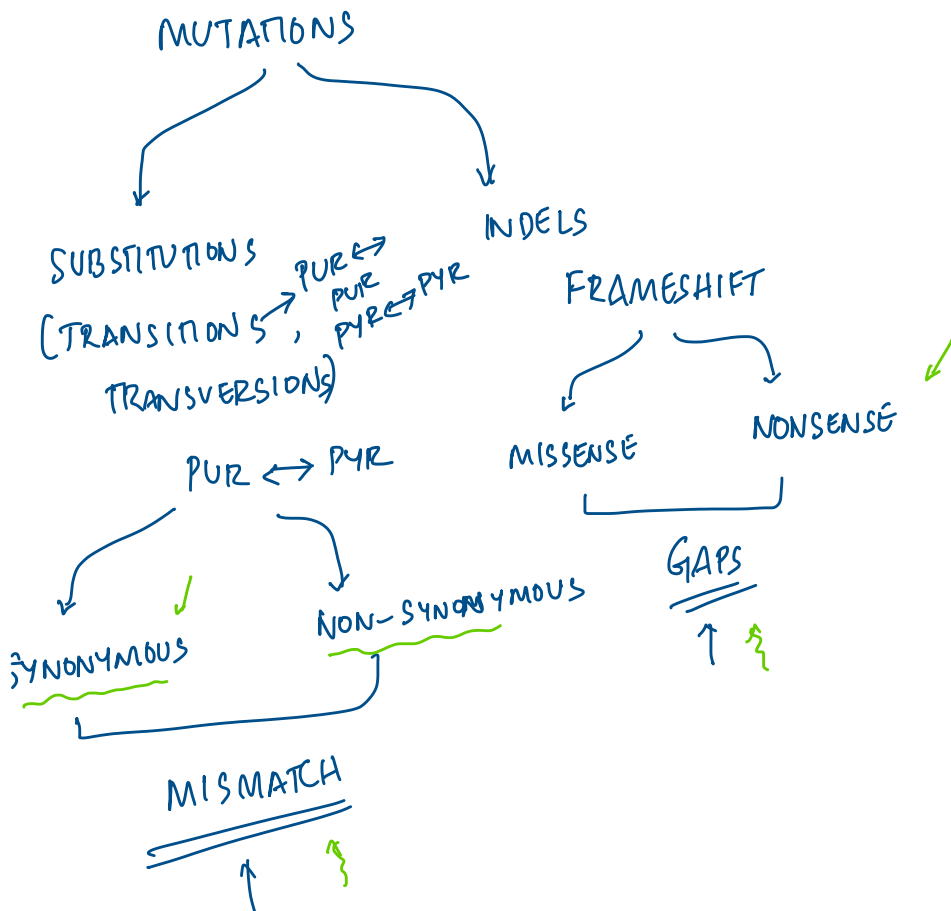 MUTATIONS
SUBSTITUTIONS
(TRANSITIONS → PUR ↔
PUR
, PYR ↔ PYR
TRANSVERSIONS)
PUR ↔ PYR
SYNONYMOUS
NON-SYNONYMOUS
MISMATCH
INDELS
FRAMESHIFT
MISSENSE
NONSENSE
GAPS